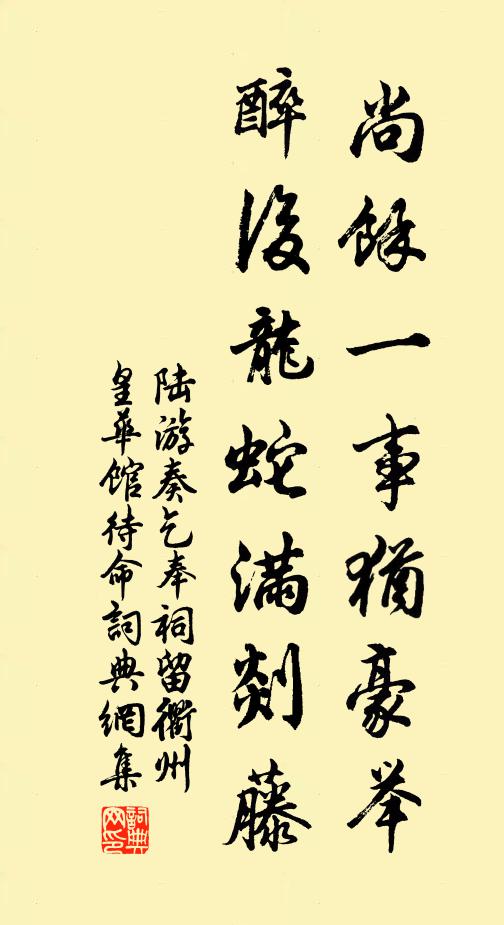 尚餘一事猶豪举
醉後龍蛇满剡藤
陆游奏乞奉祠留衢州
皇华館待命詞典網集
詞典網印